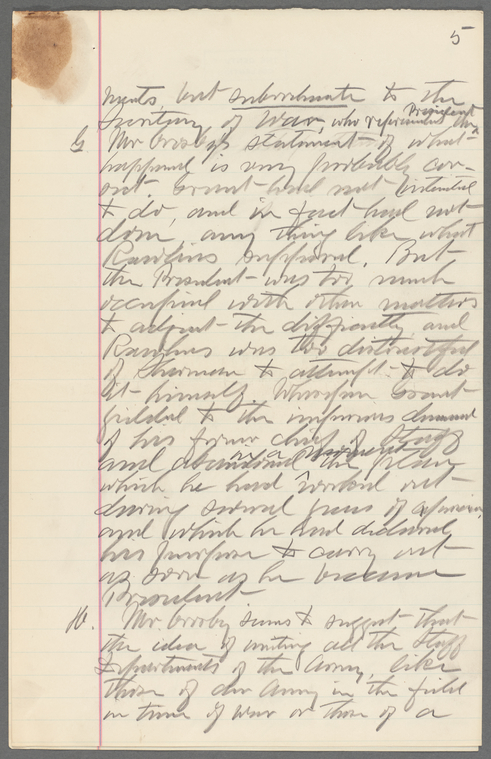 5
ments, but subordinate to the
Secretary of War, who represented the President.
G Mr Crosby's statement of what
happened is very probably cor-
rect. Grant had not intended
to do, and in fact had not
done, any thing like what
Rawlins supposed. But
the President was too much
occupied with other matters
to adjust the difficulty, and
Rawlins was too distrustful
of Sherman to attempt to do
it himself. Wherefore Grant
yielded to the imperious demand
of his former chief of Staff
and abandoned, as President, the plan
which he had worked out
during several years of experience,
and which he had declared
his purpose to carry out
as soon as he became
President.
H. Mr. Crosby seems to suggest that
the idea of uniting all the Staff
Departments of the Army, like
those of an Army in the field
in time of war or those of a